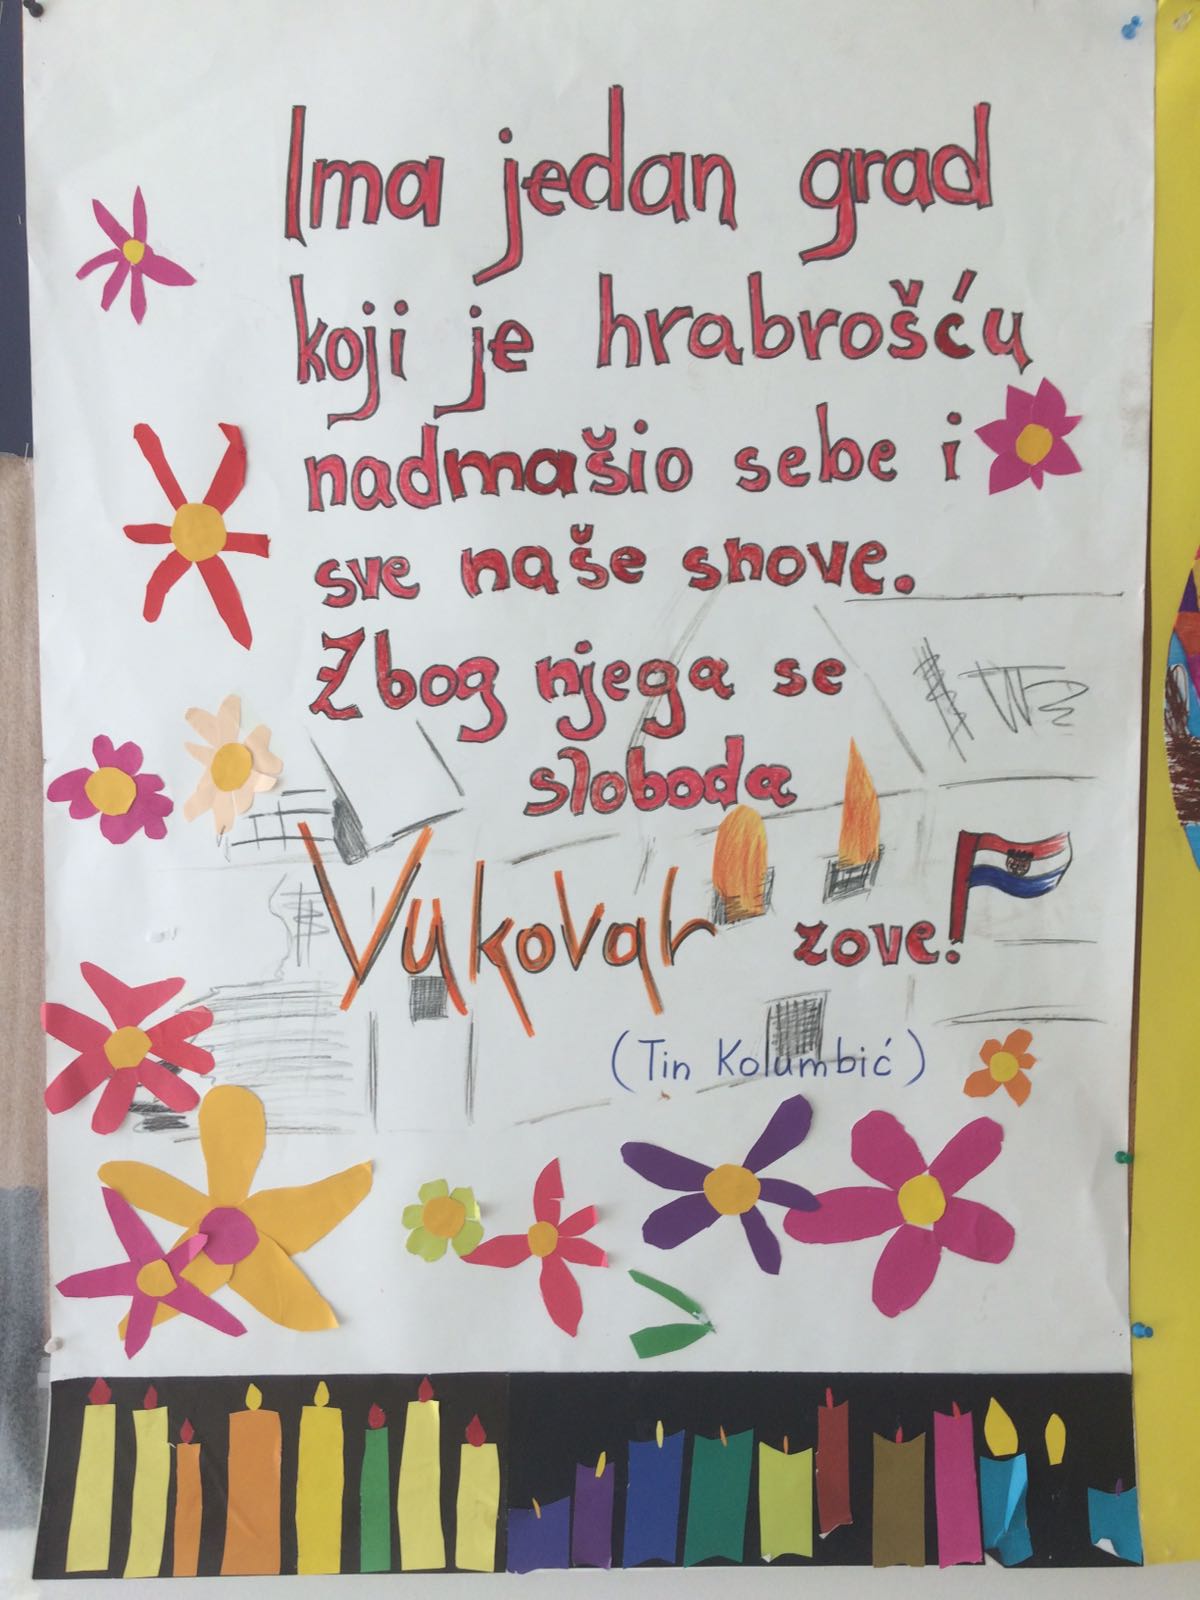 Ima jedan grad
koji je hrabrošču
nadmašio sebe i
sve naše snove.
Zbog njega se
sloboda
Vukovar zove!
(Tin Kolumbić)